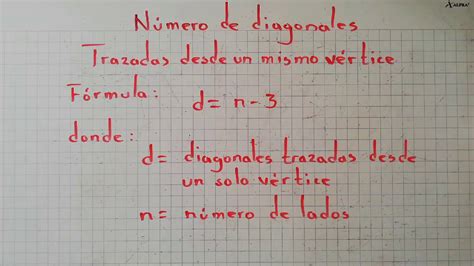 Número de diagonales
Trazadas desde un mismo vértice
Fórmula: d= n-3
donde:
d= diagonales trazadas desde
un solo vértice
n= número de lados